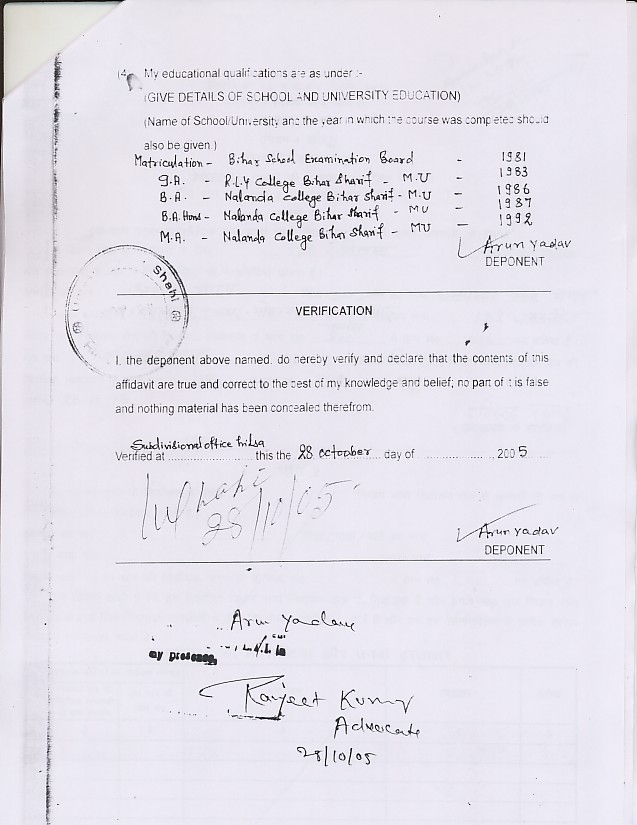 (4 My educational qualifications are as under :-
(GIVE DETAILS OF SCHOOL AND UNIVERSITY EDUCATION)
(Name of School/University and the year in which the course was completed should
also be given )
Matriculation - Bihar School Examination Board - 1981
I.A. - R.L.Y College Bihar Sharif - M.U - 1983
B.A. - Nalanda College Bihar Sharif - M.U - 1986
B.A. Hons - Nalanda College Bihar Sharif - MU - 1987
M.A. - Nalanda College Bihar Sharif - MU - 1992
Arun Yadav
DEPONENT
Shahi
VERIFICATION
I, the deponent above named, do hereby verify and declare that the contents of this
affidavit are true and correct to the best of my knowledge and belief; no part of it is false
and nothing material has been concealed therefrom.
Subdivisional office Hilsa
Verified at .................... this the 28 october day of .................., 2005
28/10/05
Arun Yadav
DEPONENT
Arun Yadav
my presence
Kumar
Advocate
28/10/05